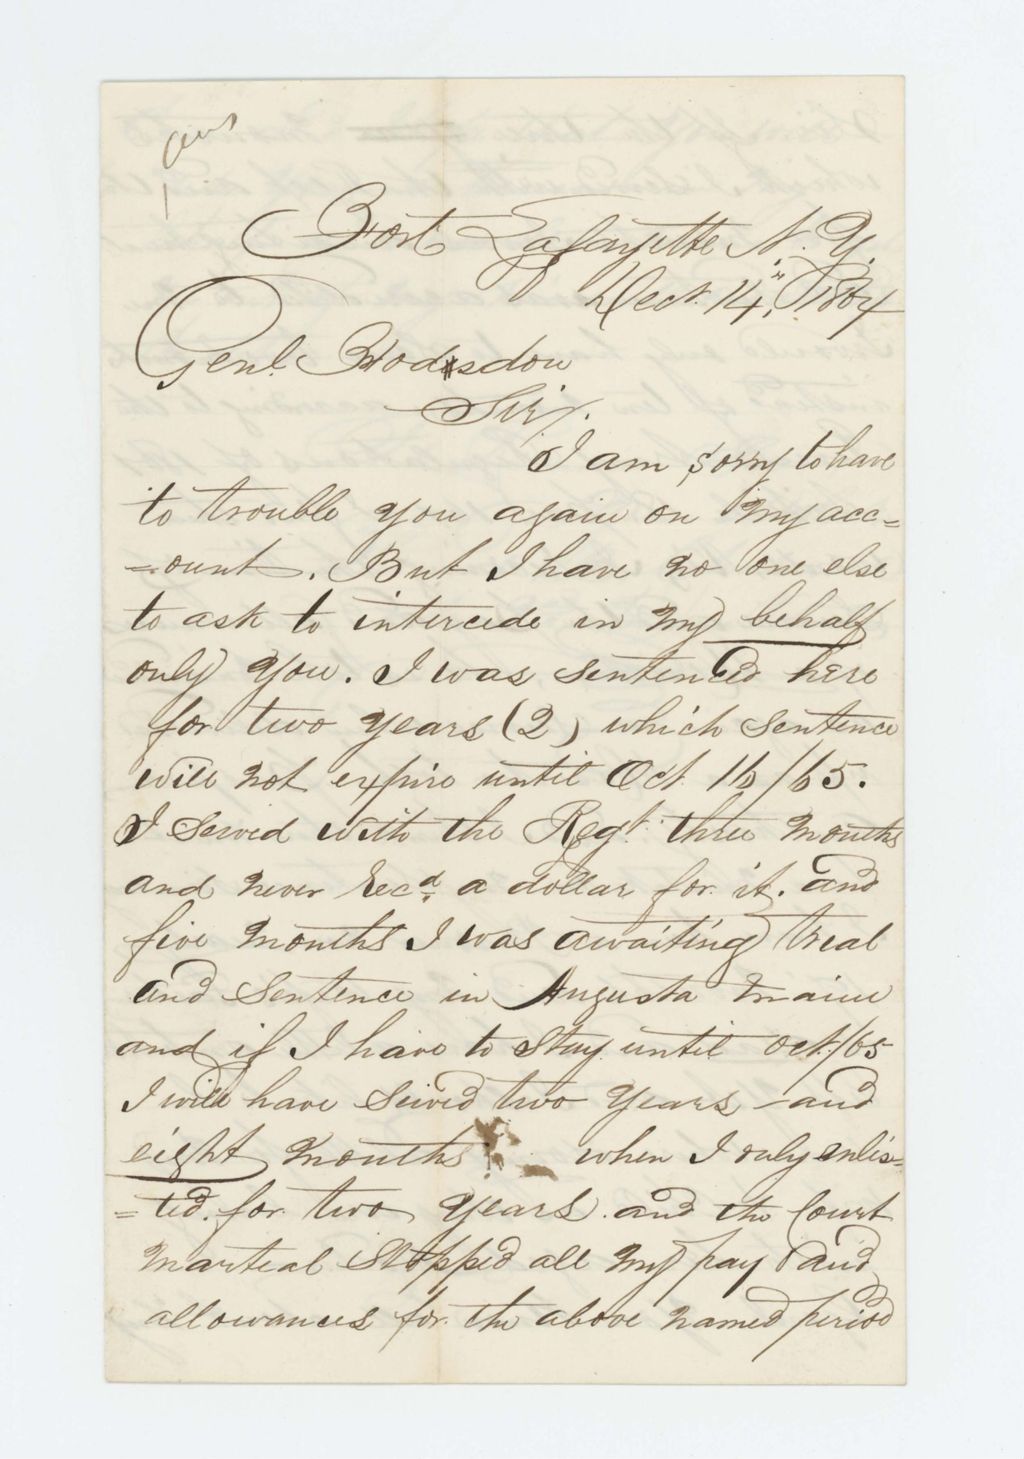 Ans
Fort Lafayette N.Y.
Dect. 14th, 1864
Genl. Hodsdon
Sir.
I am sorry to have
to trouble you again on my acc=
=ount. But I have no one else
to ask to intercede in my behalf
only you. I was sentenced here
for two years (2) which sentence
will not expire until Oct 16/65.
I served with the Regt. three months
and never Recd. a dollar for it. and
five months I was awaiting treal
and Sentence in Augusta Maine
and if I have to Stay until Oct./65
I will have Seived two Years and
eight months when I only enlis=
=ted. for two years. and the Court
Marteal Stopped all my pay and
allowances for the above named period